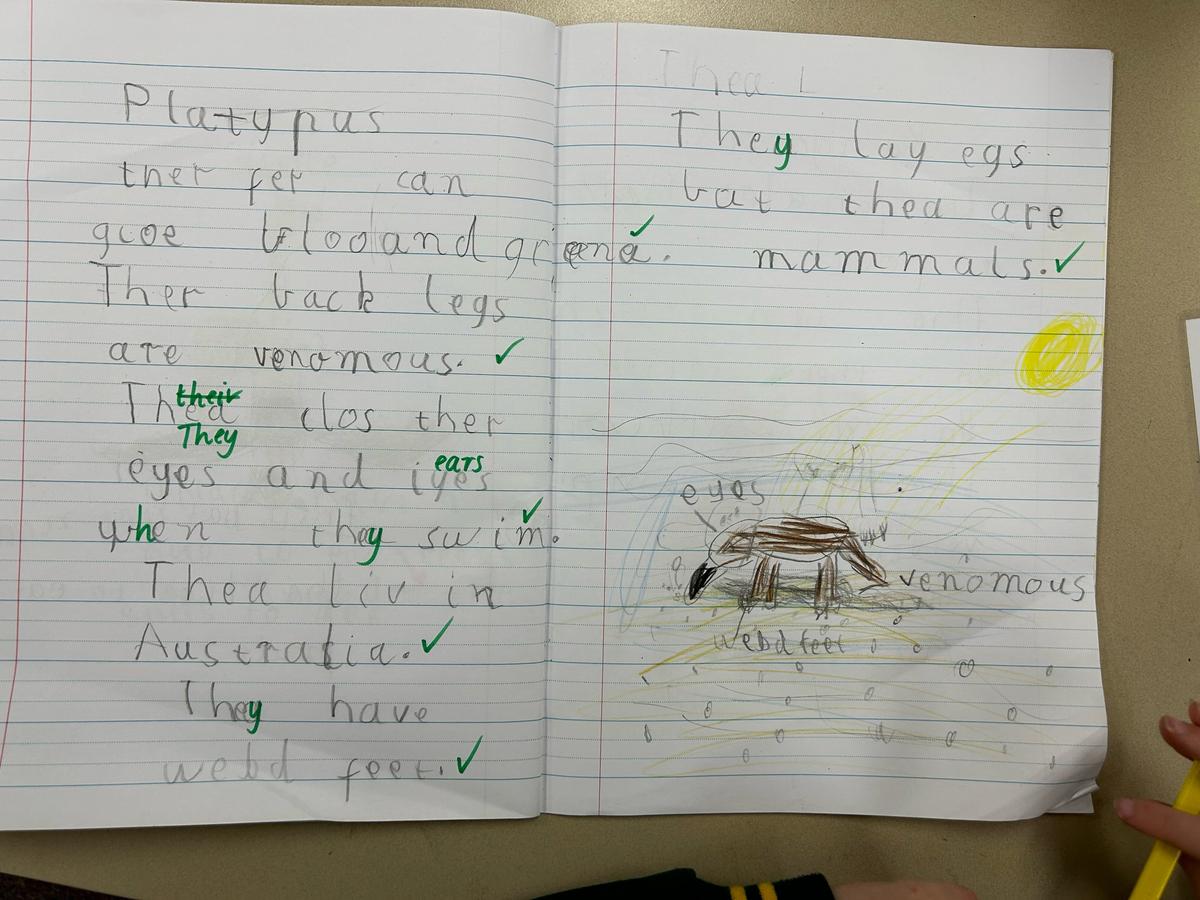 Platypus
ther fer can
gloe bloo and greena.
Ther back legs
are venomous. ✓
their
Thea clos ther
They
ears
eyes and iyes
when they swim.
Thea liv in
Australia. ✓
They have
webd feet. ✓
Thea L
They lay egs
bat thea are
mammals. ✓
eyes
venomous
webd feet